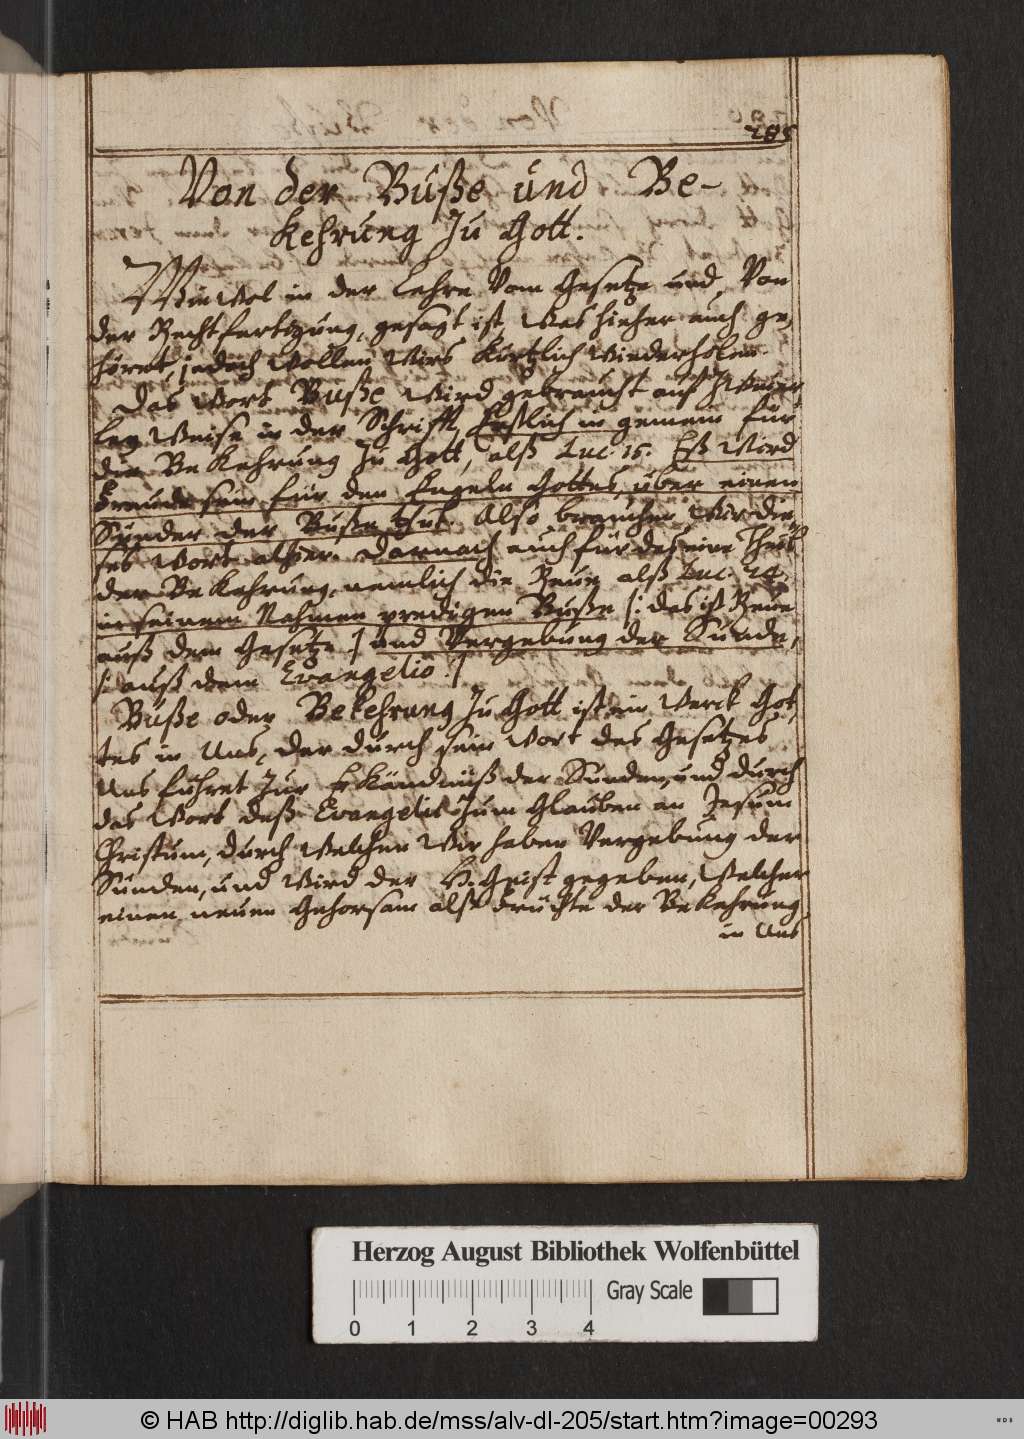 285
Von der Buße und Be-
kehrung zu Gott.
Wiewol in der Lehre Vom Gesetze und Von
der Rechtfertigung, gesagt ist, Was hieher auch ge,
höret, jedoch Wollen Wirs Kürtzlich Wiederholen.
Das Wort Buße Wird gebraucht auf zweyer,
ley Weise in der Schrifft, Erstlich in gemein für
die Bekehrung zu Gott, alß Luc. 15. Eß Wird
Freude sein für den Engeln Gottes, über einen
Sünder der Buße thut. Also brauchen Wir die
ses Wort alhier. Darnach auch für das eine Theil
der Bekehrung, nemlich die Reue alß Luc. 24.
in seinem Nahmen predigen Buße /: das ist Reue
auß dem Gesetze :/ und Vergebung der Sünde,
/: auß dem Evangelio :/
Buße oder Bekehrung zu Gott ist ein Werck Got,
tes in Uns, der durch sein Wort des Gesetzes
Uns führet zur Erkändnüß der Sünden, und durch
das Wort deß Evangelii zum Glauben an Jesum
Christum, durch Welchen Wir haben Vergebung der
Sünden, und Wird der H. Geist gegeben, Welcher
einen neuen Gehorsam alß Früchte der Bekehrung
in Uns
Herzog August Bibliothek Wolfenbüttel
Gray Scale
0 1 2 3 4
© HAB http://diglib.hab.de/mss/alv-dl-205/start.htm?image=00293
WDB